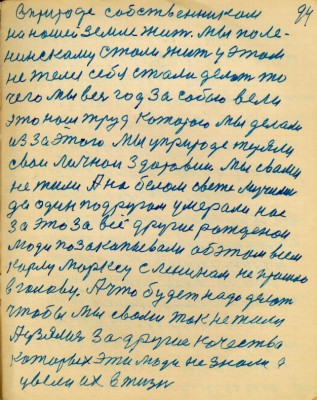 94
В природе собственником
на нашей земле жит. Мы поле-
нинскому стали жит у этом
не жели себя стали делат то
чего мы вся год за собою вели
это наш труд которого мы делали
из за этого мы у природе теряли
свои личное здоровия мы своим
не жили А на белом свете мучили
да один под другом умерали нас
за это за всё другие рожденои
люди позакапывали об этом всем
Карлу Марксу с Ленинам не пришло
в голову. А что будет надо делат
чтобы мы своим так не жили
А взялися за другие качества
которых эти люди не знали а
увели их в жизн